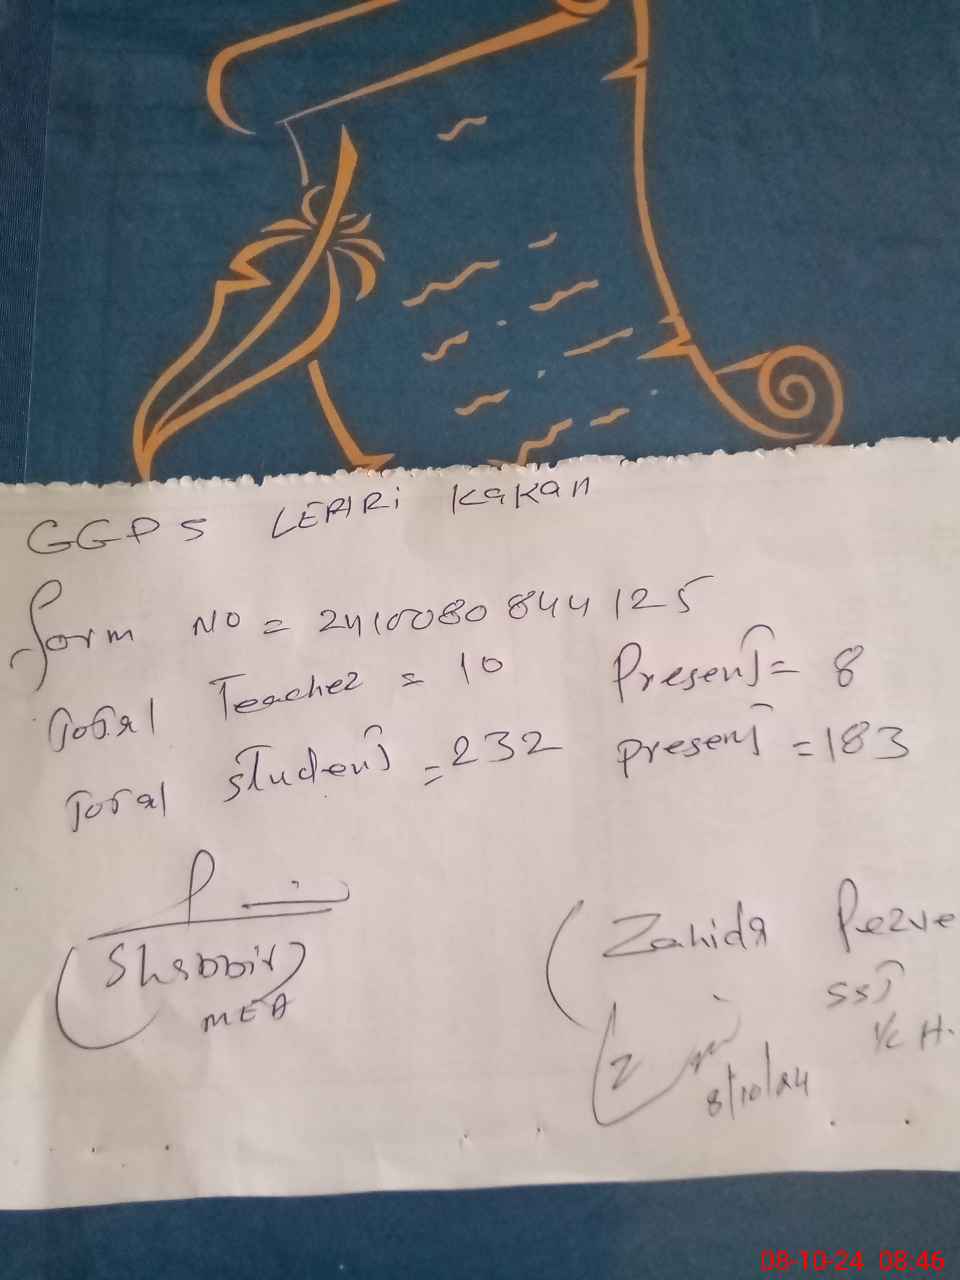 GGPS LEHRi KaKaN
form NO = 2410080844125
Total Teacher = 10 Present = 8
Total student = 232 present = 183
(Shabbir)
MEA
(Zahida Perve
SST
I/C H.
8/10/24
08-10-24 08:46